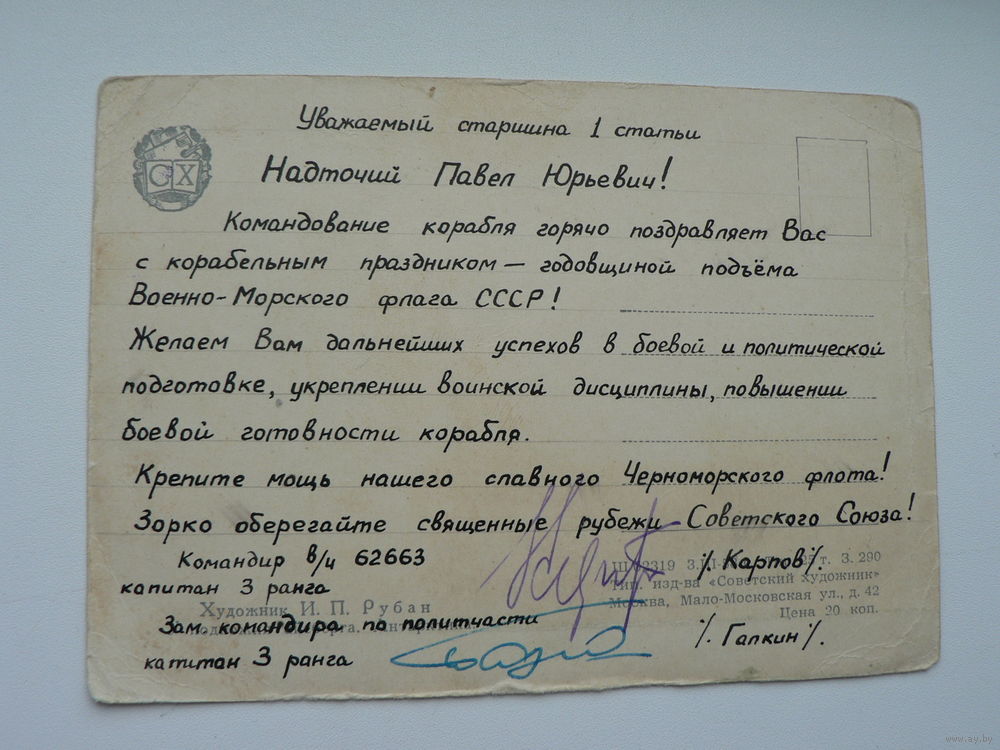 Уважаемый старшина 1 статьи
СХ
Надточий Павел Юрьевич!
Командование корабля горячо поздравляет Вас
с корабельным праздником — годовщиной подъёма
Военно-Морского флага СССР!
Желаем Вам дальнейших успехов в боевой и политической
подготовке, укреплении воинской дисциплины, повышении
боевой готовности корабля.
Крепите мощь нашего славного Черноморского флота!
Зорко оберегайте священные рубежи Советского Союза!
Командир в/ч 62663 /. Карпов /.
З. 290
капитан 3 ранга
Тип. изд-ва «Советский художник»
Москва, Мало-Московская ул., д. 42
Художник И. П. Рубан
Цена 20 коп.
Зам. командира по политчасти /. Галкин /.
капитан 3 ранга
www.ay.by